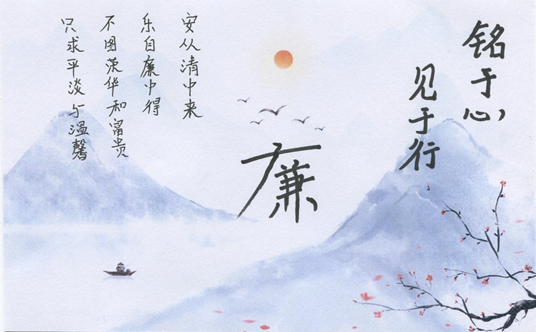 铭于心,
见于行。
廉
安从清中来
乐自廉中得
不图荣华和富贵
只求平淡与温馨